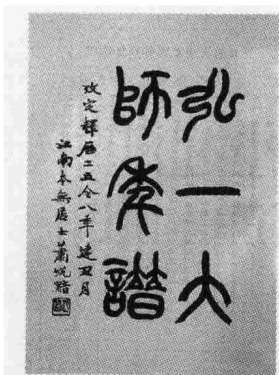 弘一大
師年譜
攷定釋歷二五八年建丑月
江南本無居士蕭蛻